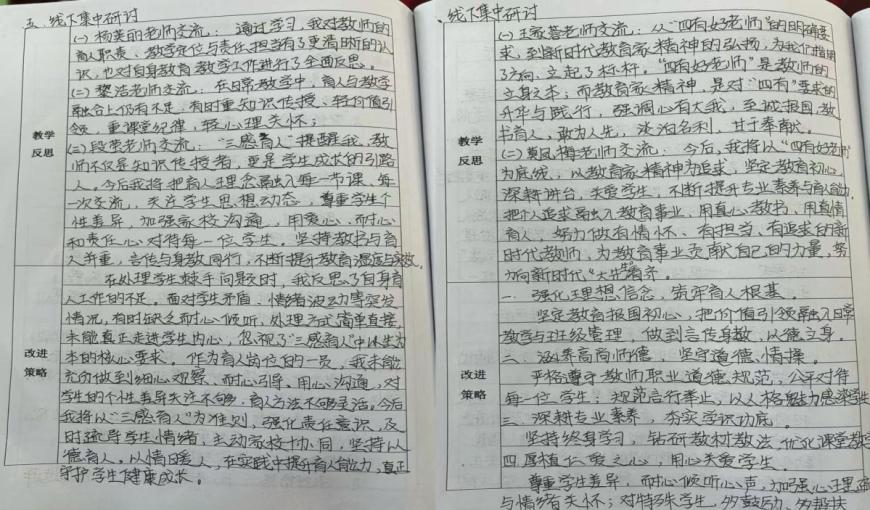 五.线下集中研讨
教学
反思
(一)杨英丽老师交流：通过学习,我对教师的
育人职责、教学定位与责任担当有了更清晰的认
识,也对自身教育教学工作进行了全面反思。
(二)黎浩老师交流：在日常教学中,育人与教学
融合上仍有不足,有时重知识传授、轻价值引
领,重课堂纪律,轻心理关怀;
(三)段荣老师交流：“三感育人”提醒我,教
师不仅是知识传授者,更是学生成长的引路
人。今后我将把育人理念融入每一节课、每
一次交流,关注学生思想动态,尊重学生个
性差异,加强家校沟通,用爱心、耐心
和责任心对待每一位学生,坚持教书与育
人并重,言传与身教同行,不断提升教育温度与实效。
改进
策略
在处理学生棘手问题时,我反思了自身育
人工作的不足。面对学生矛盾、情绪波动等突发
情况,有时缺乏耐心倾听,处理方式简单直接,
未能真正走进学生内心,忽视了“三感育人”中以生为
本的核心要求。作为育人岗位的一员,我未能
充分做到细心观察、耐心引导、用心沟通,对
学生的个性差异关注不够,育人方法不够灵活。今后
我将以“三感育人”为准则,强化责任意识,及
时疏导学生情绪,主动家校协同,坚持以
德育人、以情暖人,在实践中提升育人能力,真正
守护学生健康成长。
、线下集中研讨
教学
反思
(一)王 老师交流：从“四有好老师”的明确要
求,到新时代教育家精神的弘扬,为我们指明
了方向,立起了标杆。“四有好老师”是教师的
立身之本;而教育家精神,是对“四有”要求的
升华与践行,强调心有大我,至诚报国,教
书育人,敢为人先,淡泊名利,甘于奉献。
(二) 凤梅老师交流：今后,我将以“四有好老师”
为底线,以教育家精神为追求,坚定教育初心,
深耕讲台,关爱学生,不断提升专业素养与育人能力,
把个人追求融入教育事业、用真心教书、用真情
育人,努力做有情怀、有担当、有追求的新
时代教师,为教育事业贡献自己的力量,努
力向新时代“大先生”看齐。
改进
策略
一.强化理想信念,筑牢育人根基。
坚定教育报国初心,把价值引领融入日常
教学与班级管理,做到言传身教,以德立身。
二、涵养高尚师德,坚守道德情操。
严格遵守教师职业道德规范,公平对待
每一位学生,规范言行举止,以人格魅力感染学生
三.深耕专业素养,夯实学识功底。
坚持终身学习,钻研教材教法,优化课堂教学
四.厚植仁爱之心,用心关爱学生。
尊重学生差异,耐心倾听心声,加强心理
与情绪关怀;对特殊学生,多鼓励、多帮扶